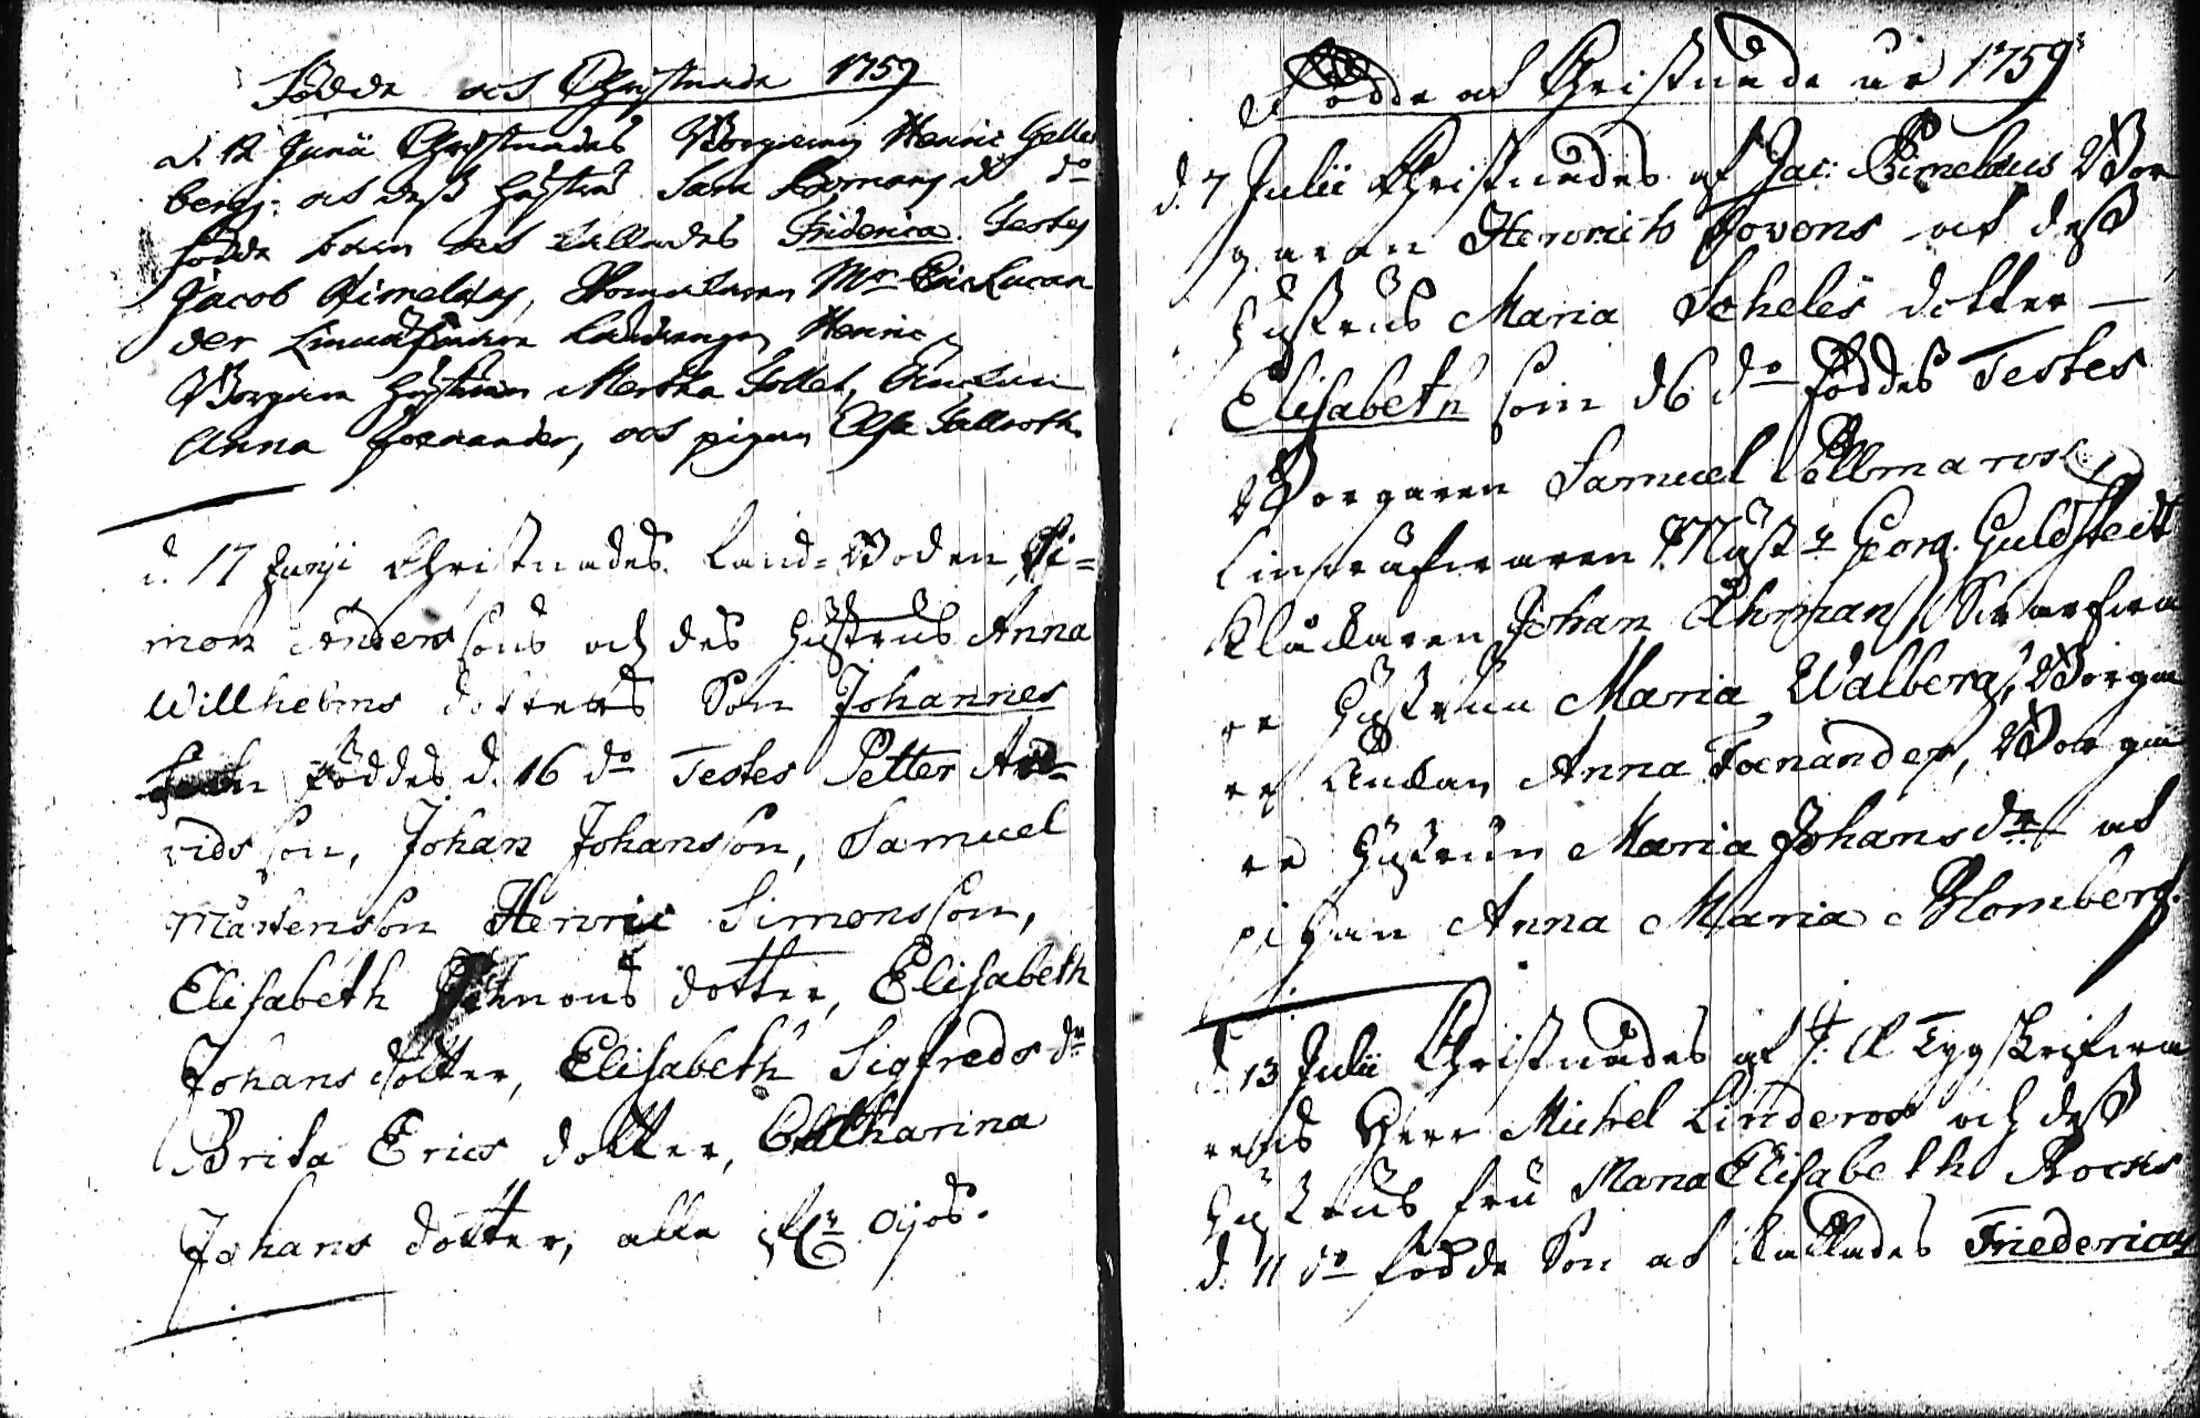 Födde och Christnade 1759
d. 12 Junii Christnades Borgaren Henric Helle
bergs och dess hustrus Sara d do
födde barn och kallades Friderica. Testes
Jacob Rimelius, Mr Eric Lucan
der Henric
Borgare hustrun Mertha Enckan
Anna Forenander, och pigan
d. 17 Junji Christnades Land-Boden Si-
mon Anderssons och des hustrus Anna
Willhelms dotters Son Johannes
som föddes d. 16 do Testes Petter Ar-
vidsson, Johan Johansson, Samuel
Mårtensson Henric Simonsson,
Elisabeth Simons dotter, Elisabeth
Johans dotter, Elisabeth Sigfreds dr
Brita Erics dotter, Catharina
Johans dotter, alla
Födde och Christnade åhr 1759
d. 7 Julii Christnades af Jac: Rimelius Bor
garen Henrich och dess
hustrus Maria dotter
Elisabeth som d 6 do föddes Testes
Borgaren Samuel
Mäst r Georg. Guldstedt
Johan Öhrman Svarfva
re hustrun Maria Walberg, Borga
re Enckan Anna Forenander, Borga
re hustrun Maria Johans dr och
pigan Anna Maria Blomberg.
d. 13 Julii Christnades af Tygskrifwa
rens Herr Michel Linderoos och dess
hustrus fru Maria Elisabeth Rocks
d. 11 do födde Son och kallades Friedericus